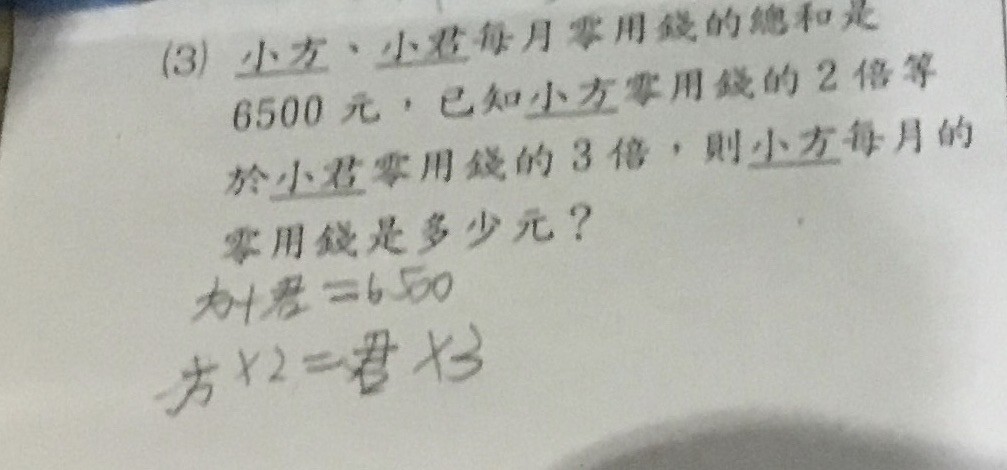 (3) 小方、小君每月零用錢的總和是
6500元，已知小方零用錢的2倍等
於小君零用錢的3倍，則小方每月的
零用錢是多少元？
方+君=6500
方×2=君×3